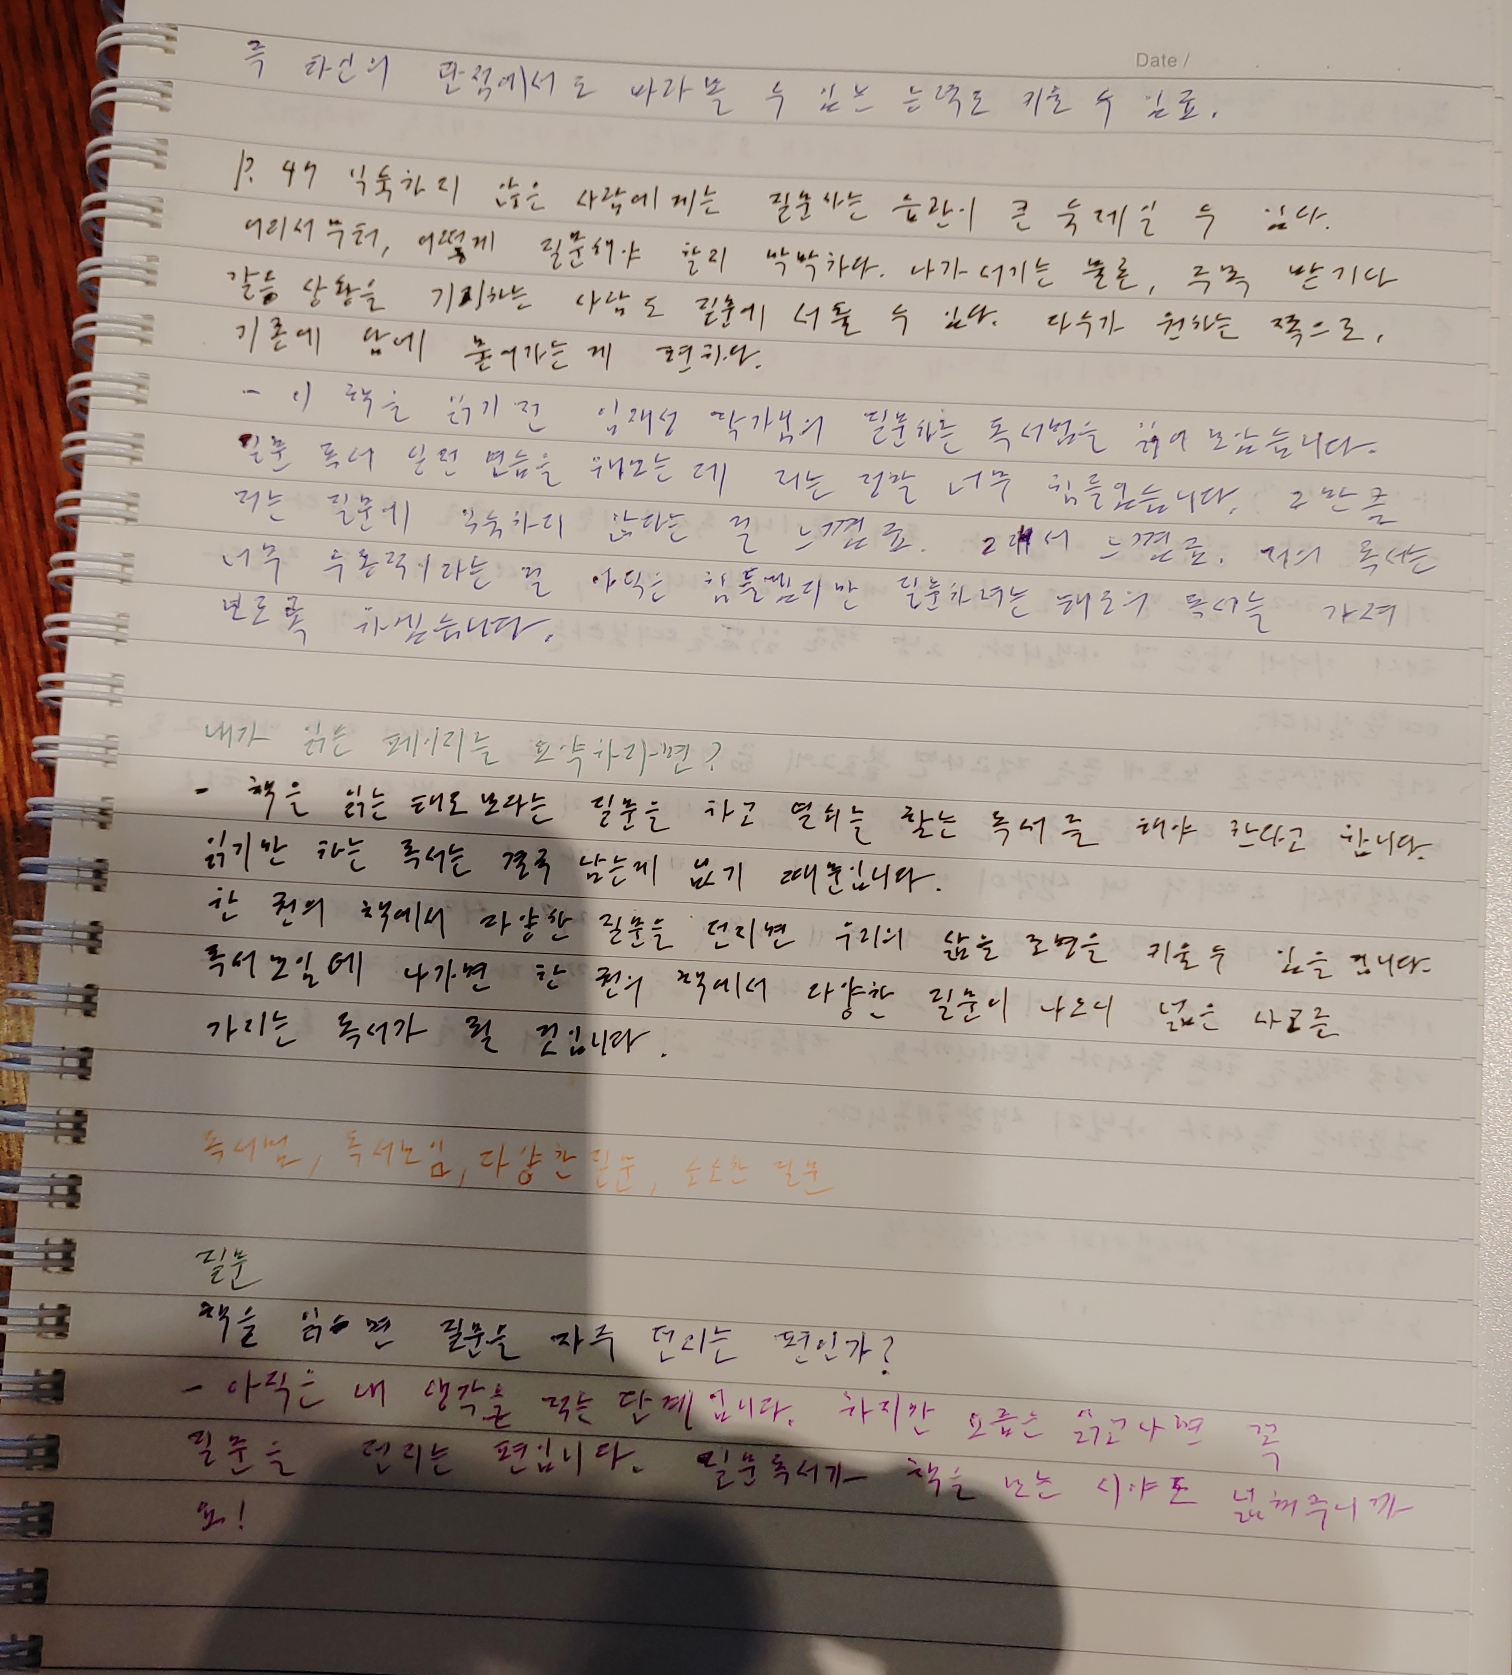 Date /
즉 타인의 관점에서도 바라볼 수 있는 능력도 키울 수 있죠.
P. 47 익숙하지 않은 사람에게는 질문하는 습관이 큰 숙제일 수 있다.
어디서부터, 어떻게 질문해야 할지 막막하다. 나가서기는 물론, 주목 받기다
갈등 상황을 기피하는 사람도 질문에 서툴 수 있다. 다수가 원하는 쪽으로,
기존에 남에 묻어가는게 편하다.
- 이 책을 읽기 전 임재성 작가님의 질문하는 독서법을 읽어 보았습니다.
질문 독서 실전 연습을 해보는데 저는 정말 너무 힘들었습니다. 그만큼
저는 질문에 익숙하지 않다는 걸 느꼈죠. 그래서 느꼈죠. 저의 독서는
너무 수동적이라는 걸 아직은 힘들겠지만 질문하려는 태도의 독서를 가려
보도록 하겠습니다.
내가 읽은 페이지를 요약하라면?
- 책을 읽는 태도보다는 질문을 하고 열쇠를 찾는 독서를 해야 한다고 합니다.
읽기만 하는 독서는 결국 남는게 없기 때문입니다.
한 권의 책에서 다양한 질문을 던지면 우리의 삶을 조명을 키울수 있을 겁니다.
독서모임에 나가면 한 권의 책에서 다양한 질문이 나오니 넓은 사고를
가지는 독서가 될 것입니다.
독서법, 독서모임, 다양한 질문, 소소한 질문
질문
책을 읽으면 질문을 자주 던지는 편인가?
- 아직은 내 생각을 적는 단계입니다. 하지만 요즘은 읽고나면 꼭
질문을 던지는 편입니다. 질문독서가 책을 보는 시야도 넓혀주니까
요!